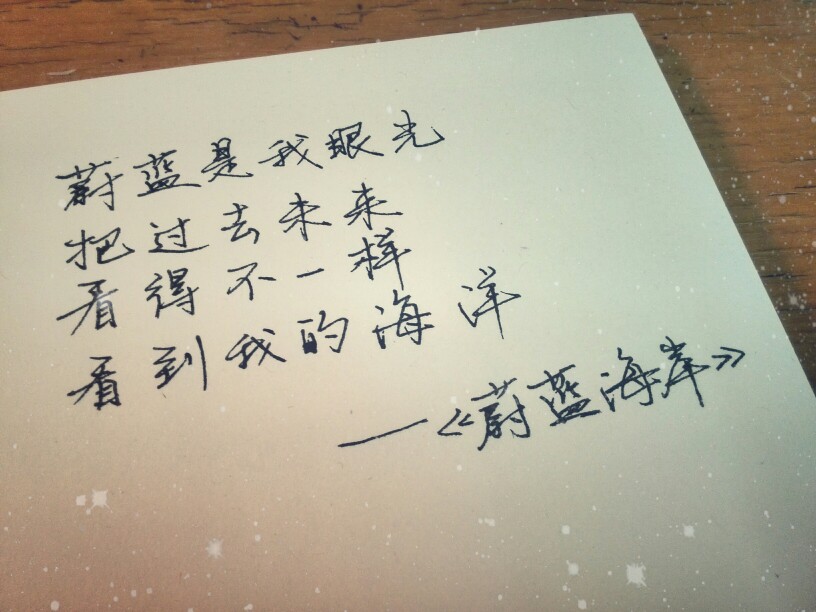 蔚蓝是我眼光
把过去未来
看得不一样
看到我的海洋
—《蔚蓝海岸》